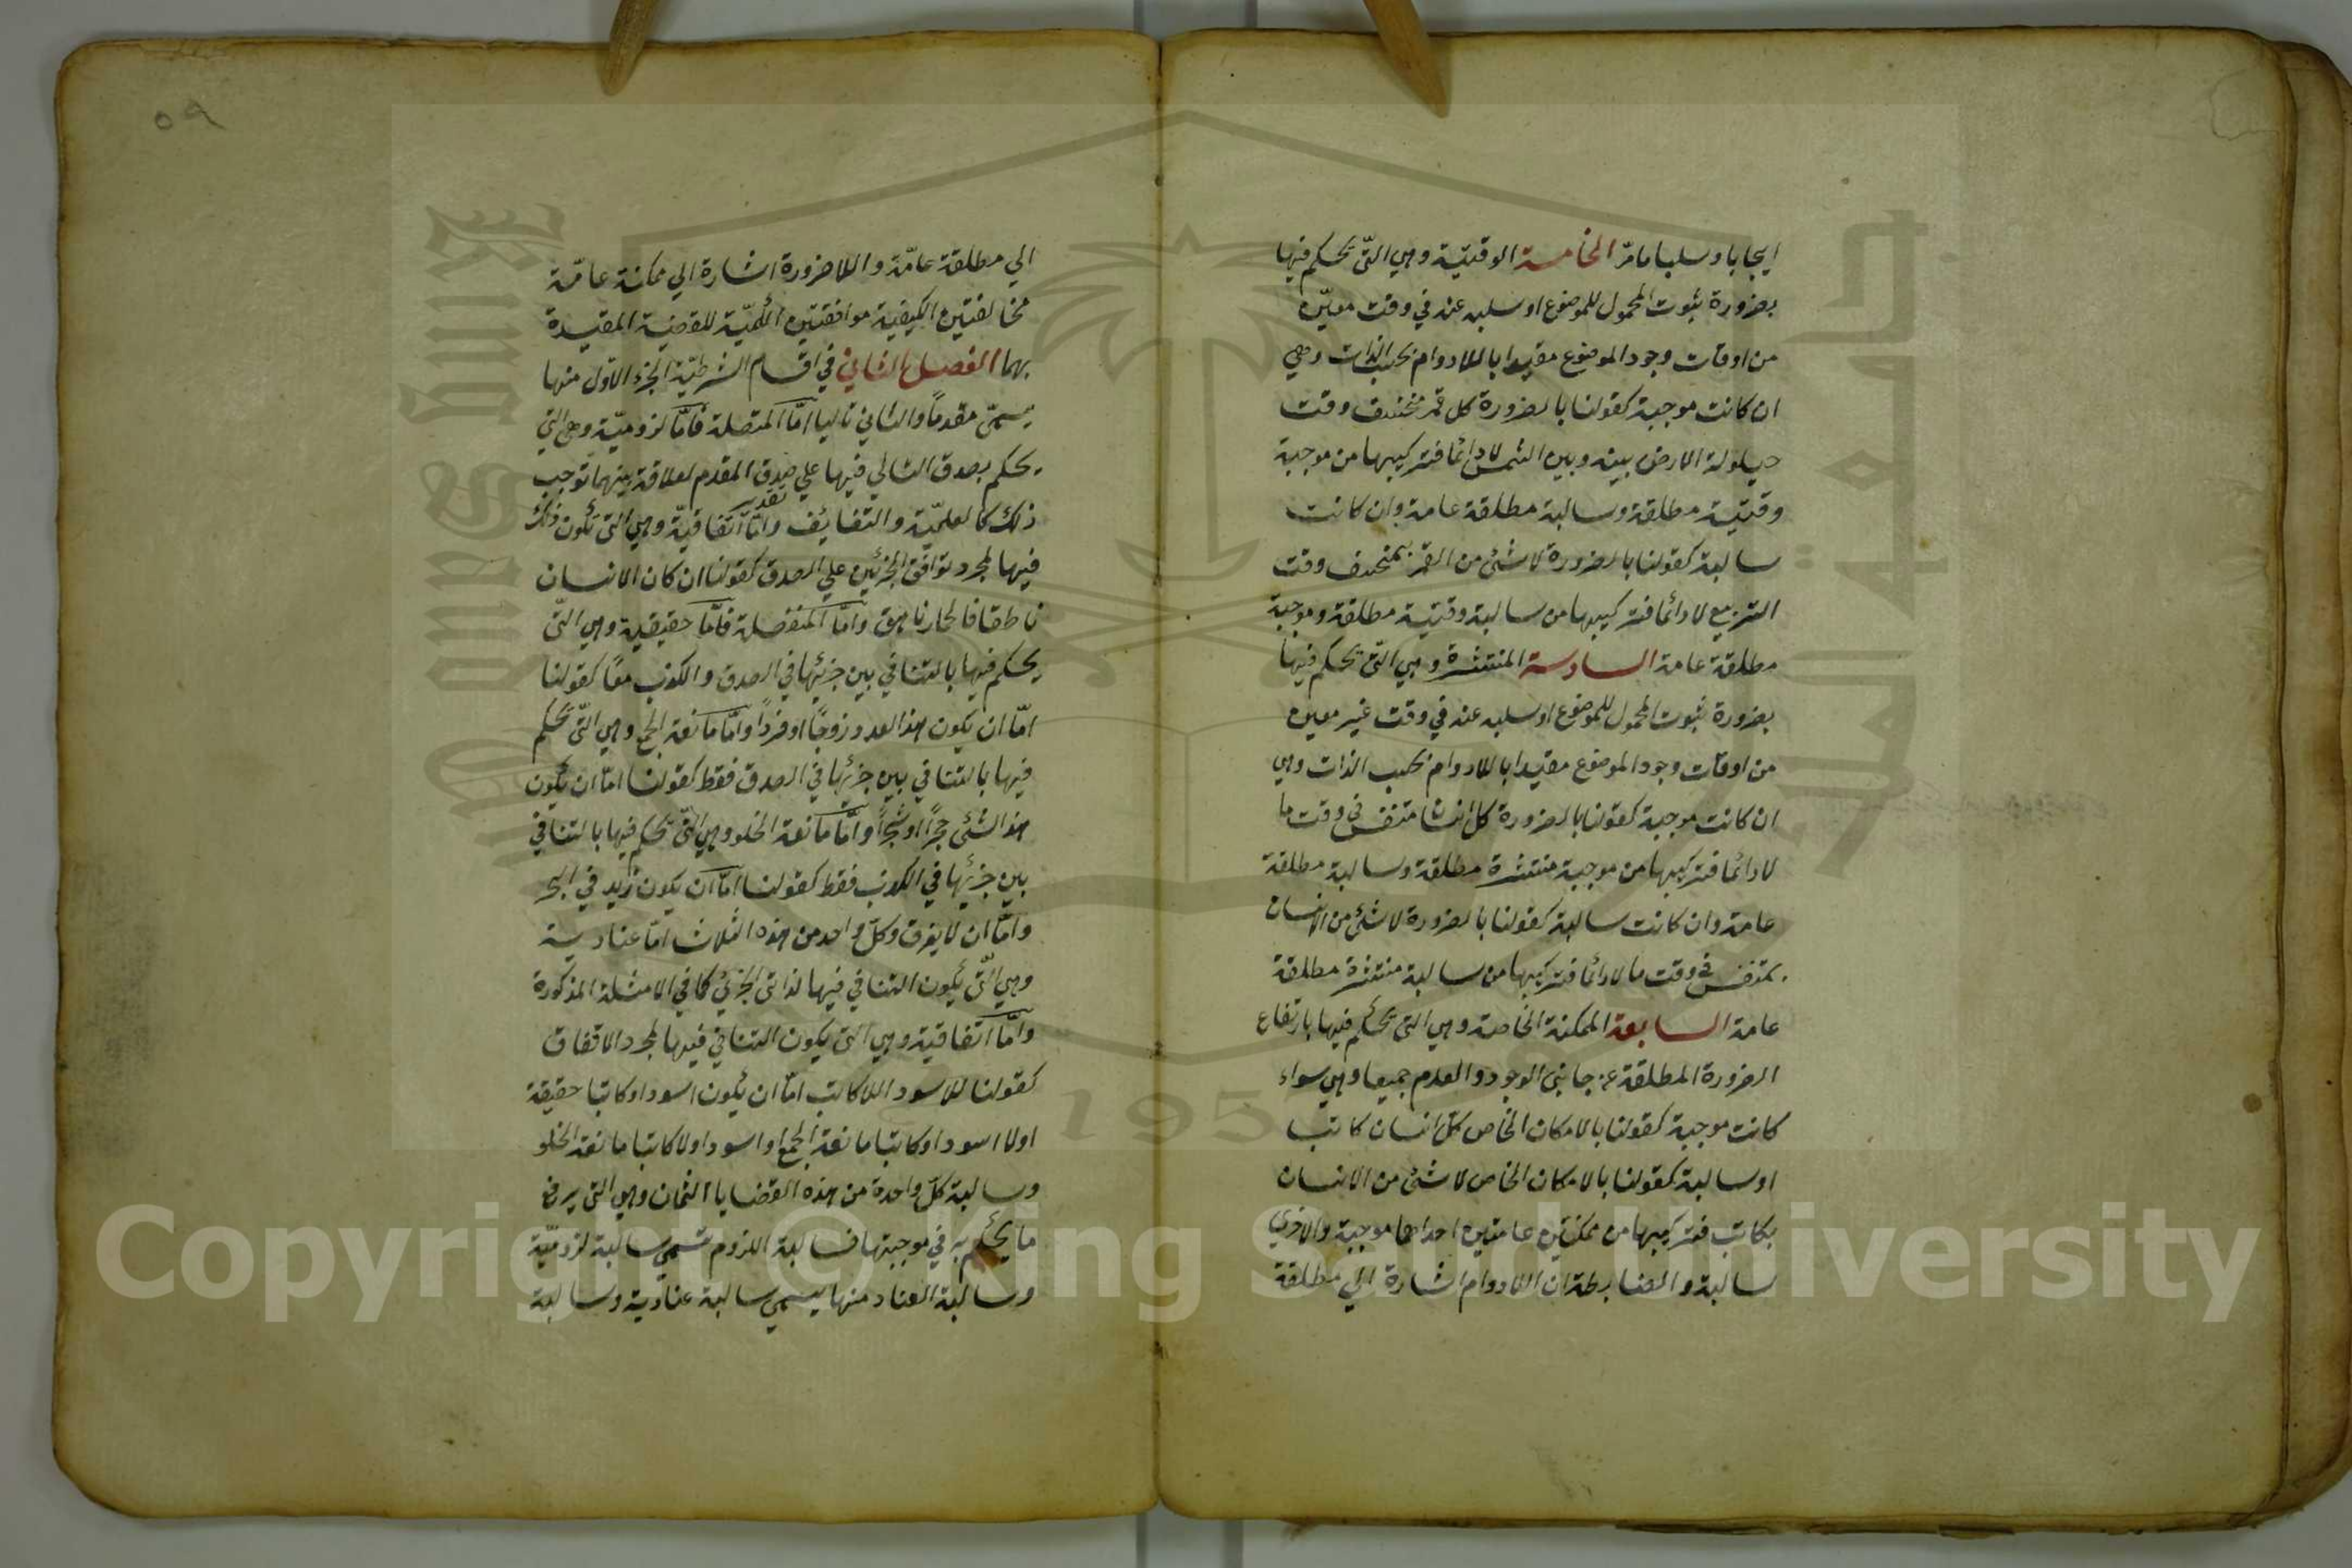 ايجابا وسلبا مامرّ الخامسة الوقتية وهي التّي تحكم فيها
بضرورة ثبوت المحمول للموضوع او سلبه عنه في وقت معيّن
من اوقات وجود الموضوع مقيدا باللادوام بحسب الذات وهي
ان كانت موجبة كقولنا بالضرورة كل قمر منخسف وقت
حيلولة الارض بينه وبين الشمس لا دائما فتركيبها من موجبة
وقتية مطلقة وسالبة مطلقة عامة وان كانت
سالبة كقولنا بالضرورة لا شئ من القمر بمنخسف وقت
التربيع لا دائما فتركيبها من سالبة وقتية مطلقة وموجبة
مطلقة عامة السادسة المنتشرة وهي التّي تحكم فيها
بضرورة ثبوت المحمول للموضوع او سلبه عنه في وقت غير معين
من اوقات وجود الموضوع مقيدا باللادوام بحسب الذات وهي
ان كانت موجبة كقولنا بالضرورة كل انسان متنفس في وقت ما
لا دائما فتركيبها من موجبة منتشرة مطلقة وسالبة مطلقة
عامة وان كانت سالبة كقولنا بالضرورة لا شئ من الانسان
بمتنفس في وقت ما لا دائما فتركيبها من سالبة منتشرة مطلقة
عامة السابعة الممكنة الخاصة وهي التي تحكم فيها بارتفاع
الضرورة المطلقة عن جانبي الوجود والعدم جميعا وهي سواء
كانت موجبة كقولنا بالامكان الخاص كل انسان كاتب
او سالبة كقولنا بالامكان الخاص لا شئ من الانسان
بكاتب فتركيبها من ممكنتين عامتين احداهما موجبة والاخري
سالبة والضابطة ان اللادوام اشارة الي مطلقة
٥٩
الي مطلقة عامّة واللاضرورة اشارة الي ممكنة عامّة
مخالفتين الكيفية موافقتين الكميّة للقضية المقيدة
بهما الفصل الثاني في اقسام الشرطيّة الجزء الاوّل منها
يسمّي مقدماً والثاني تاليا امّا المتصلة فامّا لزوميّة وهي التي
يحكم بصدق التالي فيها علي تقدير صدق المقدم لعلاقة بينهما توجب
ذلك كالعلميّة والتضايف وامّا اتفاقيّة وهي التي تكون ذلك
فيها لمجرد توافق الجزئين علي الصدق كقولنا ان كان الانسان
ناطقا فالحمار ناهق وامّا المنفصلة فامّا حقيقية وهي التّي
يحكم فيها بالتنافي بين جزئيها في الصدق والكذب معًا كقولنا
امّا ان يكون هذا العدد زوجًا او فردًا وامّا مانعة الجمع وهي التّي تحكم
فيها بالتنافي بين جزئيها في الصدق فقط كقولنا امّا ان يكون
هذا الشئ حجرًا او شجراً وامّا مانعة الخلو وهي التّي تحكم فيها بالتنافي
بين جزئيها في الكذب فقط كقولنا امّا ان يكون زيد في البحر
وامّا ان لا يغرق وكلّ واحد من هذه الثلاث امّا عنادية
وهي التّي يكون التنافي فيها لذاتي الجزئي كما في الامثلة المذكورة
وامّا اتفاقية وهي التي يكون التنافي فيها لمجرد الاتفاق
كقولنا للاسود اللاكاتب امّا ان يكون اسود او كاتبا حقيقة
او لا اسود او كاتبا مانعة الجمع او اسود او لا كاتبا مانعة الخلو
وسالبة كلّ واحدة من هذه القضايا الثمان وهي التي يرفع
ما يحكم به في موجبتها فسالبة اللزوم تسمي سالبة لزوميّة
وسالبة العناد منها يسمي سالبة عنادية وسالبة
Copyright © King Saud University
1957